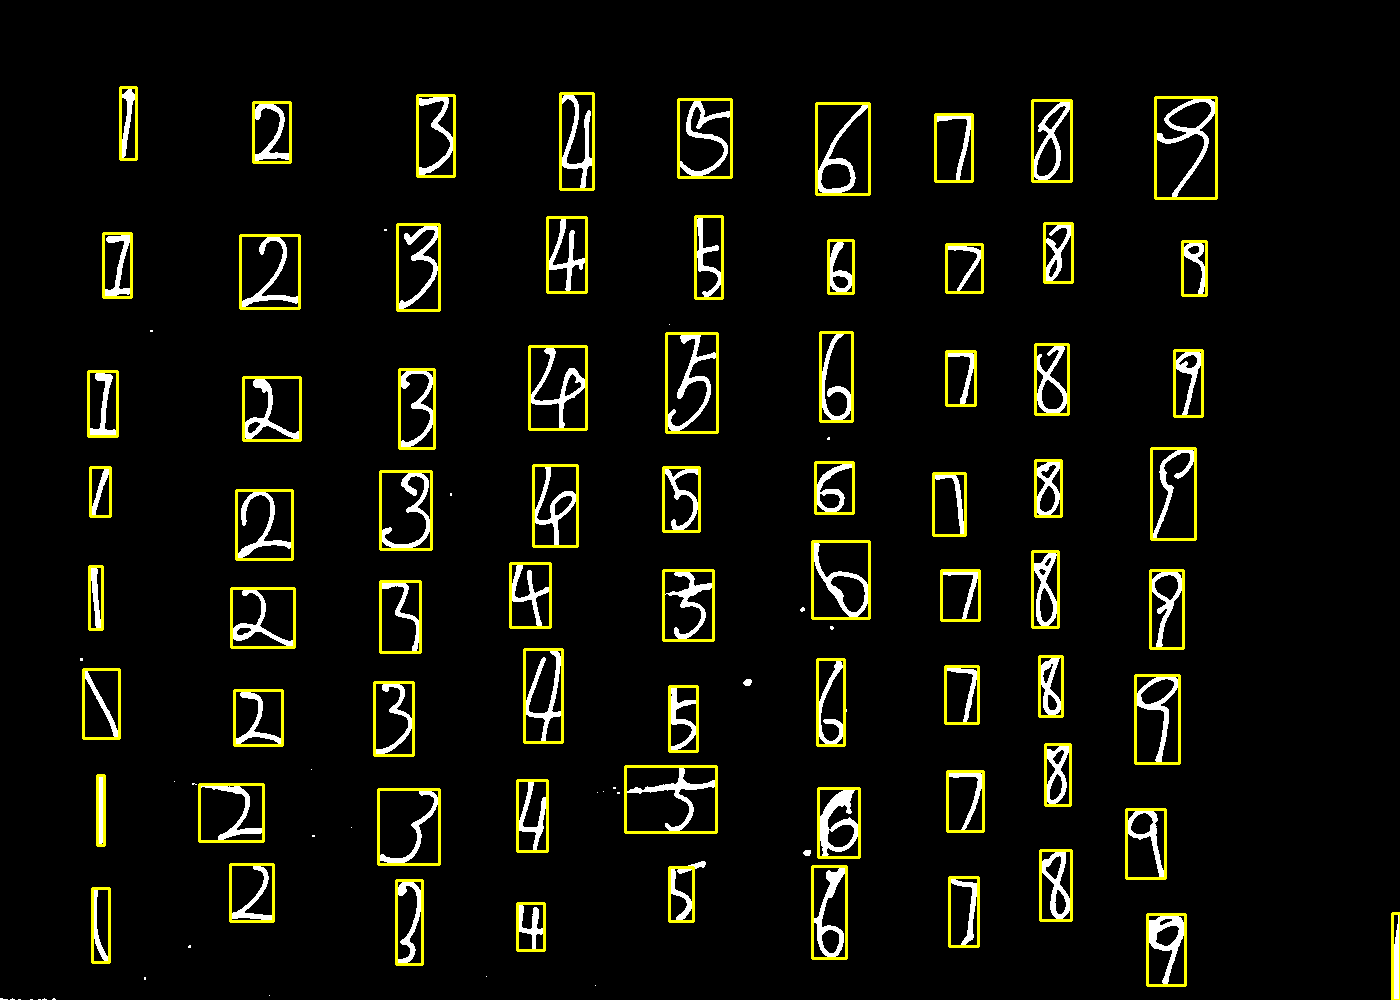 1 2 3 4 5 6 7 8 9
1 2 3 4 5 6 7 8 9
1 2 3 4 5 6 7 8 9
1 2 3 4 5 6 7 8 9
1 2 3 4 5 6 7 8 9
1 2 3 4 5 6 7 8 9
1 2 3 4 5 6 7 8 9
1 2 3 4 5 6 7 8 9